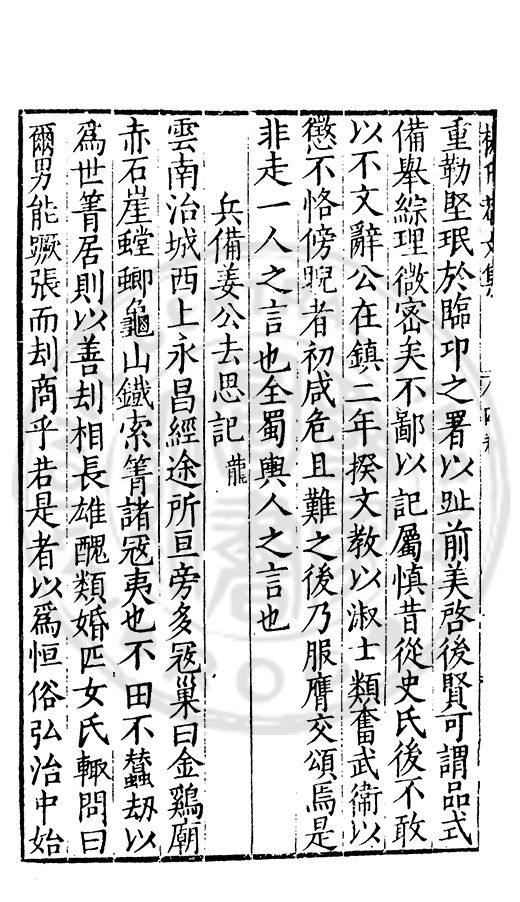 重勒堅珉於臨卭之署以趾前美啓後賢可謂品式
備舉綜理微密矣不鄙以記屬慎昔從史氏後不敢
以不文辭公在鎮二年揆文教以淑士類奮武衛以
懲不恪傍睨者初咸危且難之後乃服膺交頌焉是
非走一人之言也全蜀輿人之言也
兵備姜公去思記 龍
雲南治城西上永昌經途所亘旁多冦巢曰金鷄廟
赤石崖螳螂龜山鐵索箐諸冦夷也不田不蠶刼以
爲世箐居則以善刦相長雄醜類婚匹女氏輙問曰
爾男能蹶張而刦商乎若是者以爲恒俗弘治中始